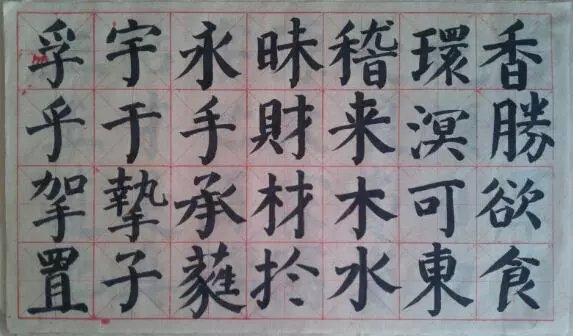 香勝欲食
環溟可東
稽来木水
昧財材扵
永手承蕤
宇于摯子
孚乎置